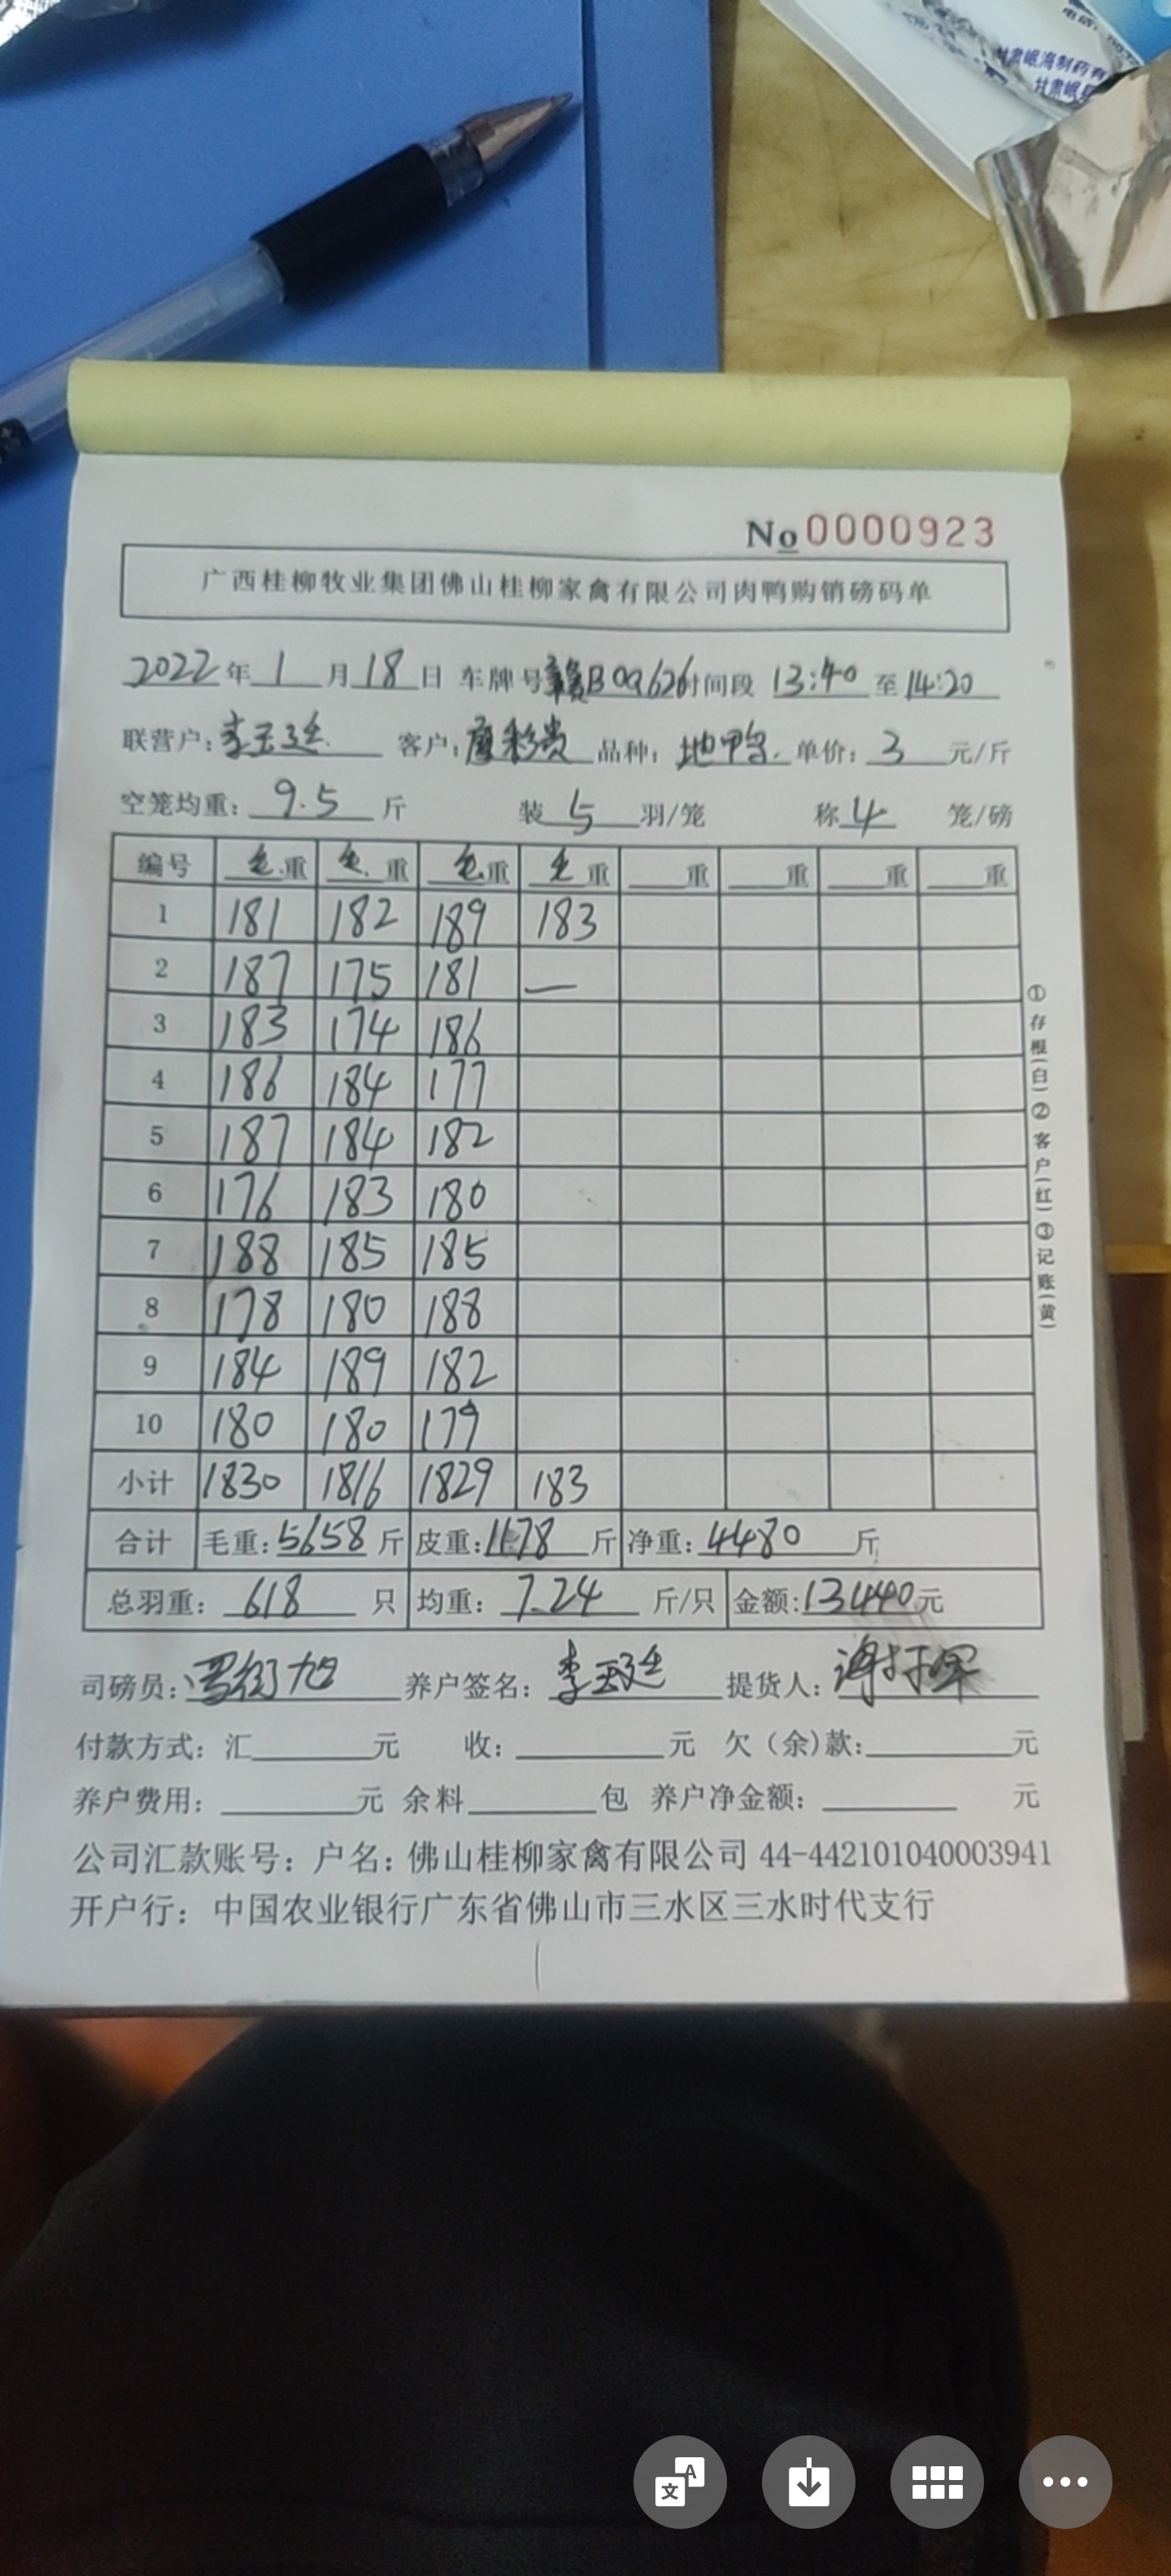 电话:
甘肃岷海制药有
甘肃岷
No 0000923
广西桂柳牧业集团佛山桂柳家禽有限公司肉鸭购销磅码单
2022年1月18日 车牌号赣B09626时间段 13:40至14:20
联营户: 客户: 品种:地鸭 单价:3元/斤
空笼均重:9.5斤 装5羽/笼 称4笼/磅
编号 毛重 毛重 毛重 毛重 重 重 重 重
1 181 182 189 183
2 187 175 181 —
3 183 174 186
4 186 184 177
5 187 184 182
6 176 183 180
7 188 185 185
8 178 180 188
9 184 189 182
10 180 180 179
小计 1830 1816 1829 183
合计 毛重:5658斤 皮重:1178斤 净重:4480斤
总羽重:618只 均重:7.24斤/只 金额:13440元
司磅员: 养户签名: 提货人:
付款方式:汇 元 收: 元 欠(余)款: 元
养户费用: 元 余料 包 养户净金额: 元
公司汇款账号:户名:佛山桂柳家禽有限公司 44-442101040003941
开户行:中国农业银行广东省佛山市三水区三水时代支行
①存根(白)②客户(红)③记账(黄)